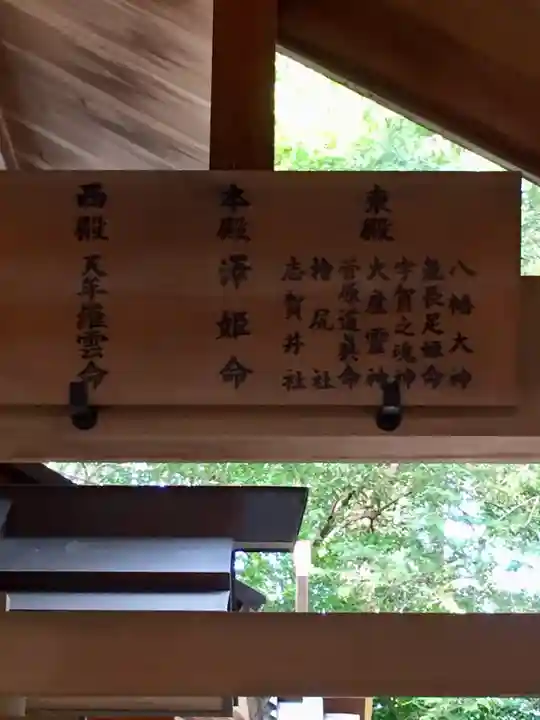 東殿
八幡大神
氣長足姫命
宇賀之魂神
火産霊神
菅原道真命
桧尻社
志賀井社
本殿
澤姫命
西殿
天羅雲命